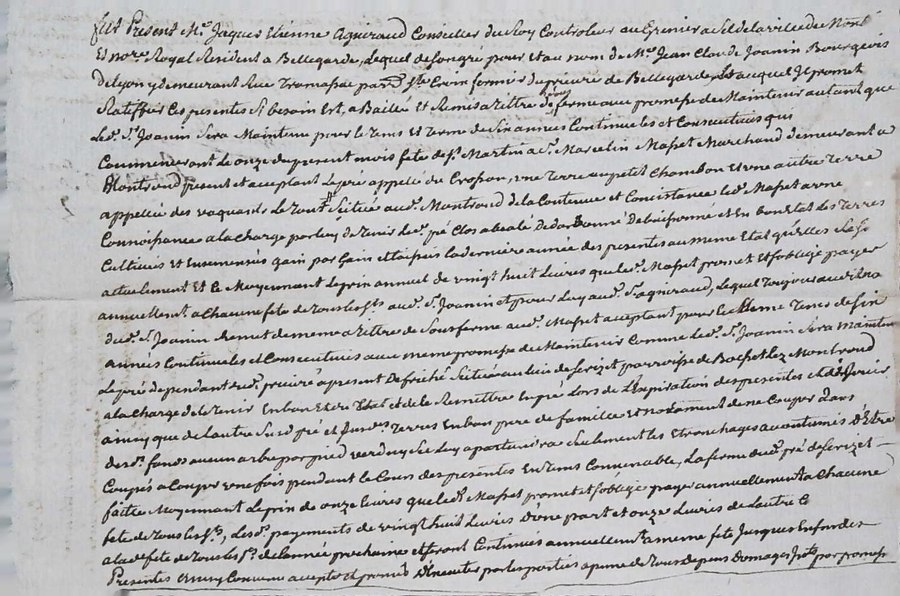 fut Present Me. Jaques Etienne Agniraud Conseiller du Roy Controleur au Grenier a Sel de la ville de Mont
Et nore. Royal Resident a Bellegarde, Lequel de son gré pour Et au nom de Me. Jean Claude Joanin Bourgeois
De Lyon y demeurant Rue Tromassac Ste. Croix fermier du prieuré de Bellegarde, auquel Il promet
Ratiffier Ces presentes Si besoin Est, a Baillé Et Remis a tittre de ferme au promesse de Maintenir autant que
Led. Sr. Joanin Sera Maintenu pour le tems Et terme de Six années Continuelles et Consecutives qui
Commenceront Le onze du present mois fete de St. Martin a Sr. Marcelin Masset Marchand demeurant a
Montrond present et acceptant Le pré appellé du Crozon, une terre au petit Chambon Et une autre terre
appellée des vaquards Le tout Scitué aud. Montrond de la Contenue et Consistance led. Masset a une
Connoissance a la Charge par luy de tenir led. pré Clos a bealé Et En bon Etat les terres
Cultivées Et Ensemensés gain par Gain Et laissés La derniere année des presentes au meme Etat quelles
actuelement Et Ce Moyennant Le prix annuel de vingt huit Livres que led. Masset promet Et soblige payer
annuellemt. a Chacune fete de tous les Sts. aud. Sr. Joanin et pour Luy aud. Sr. agniraud, Lequel toujours
dud. Sr. Joanin Remet de meme a tittre de Sousferme aud. Masset acceptant pour le Meme tems de Six
années Continuelles et Consecutives au meme promesse de Maintenir Comme led. Sr. Joanin Sera Maintenu
Le pré dependant dud. prieuré a present Defriché Scitué au lieu de Serezet parroisse de Boisset Lez Montrond
a la Charge de le tenir En bon Etat et de le Remettre En pré Lors de l'Expiration des presentes
ainsy que de lautre Susd. pré et Susdes. terres En bon pere de famille et notament de ne Couper dans
desd. fonds aucun arbre par pied verd ny Sec luy apartiendra Seulement les Etronchages accoutumés D'Etre
Coupés a Couper une fois pendant le Cours des presentes En tems Convenable, La ferme dud. pré de Serezet
faite Moyennant Le prix de onze livres que led. Masset promet et soblige payer annuellemt. a Chacune
fete de tous les Sts., Lesd. payements de vingt huit Livres D'une part et onze Livres de Lautre
a lad. fete de tous les Sts. de Lannée prochaine et Seront Continués annuellemt. a meme fete Jusques En fin des
Presentes ainsy Convenu accepté et promis D'Executer par les parties a peine de tous depens Domages Intts. par promesse